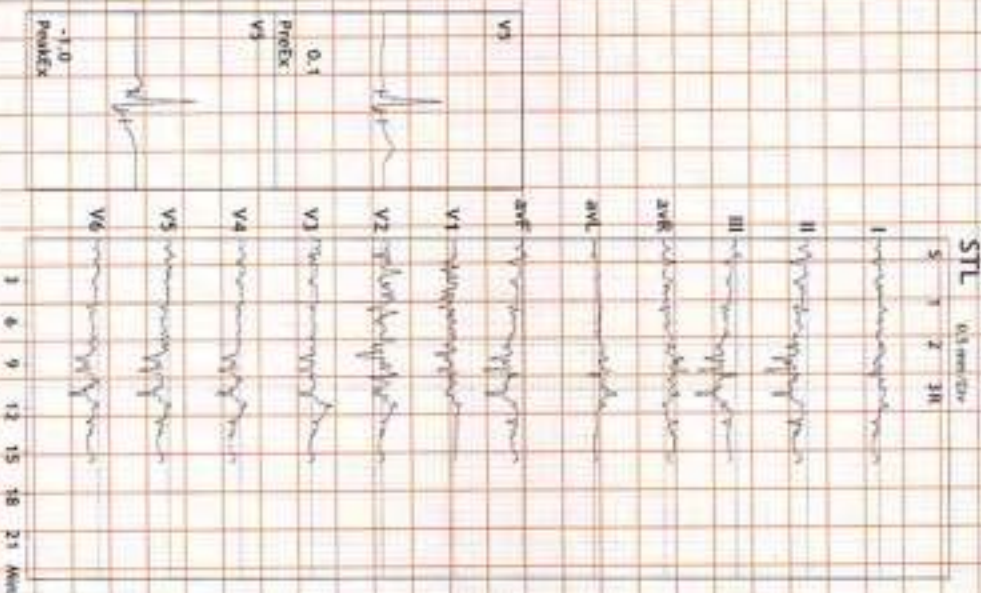 STL 0.5 mm/Div
S 1 2 3R
I
II
III
avR
avL
avF
V1
V2
V3
V4
V5
V6
3 6 9 12 15 18 21 Min
V5
0.1
PreEx
V5
-1.0
PeakEx